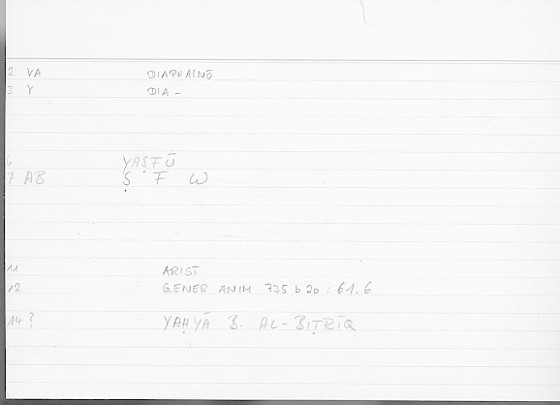 2 VA DIAPHAINŌ
3 Y DIA-
6 YAṢFŪ
7 AB Ṣ F W
11 ARIST
12 GENER ANIM 735 b 20 : 61.6
14 ? YAḤYĀ B. AL-BIṬRĪQ